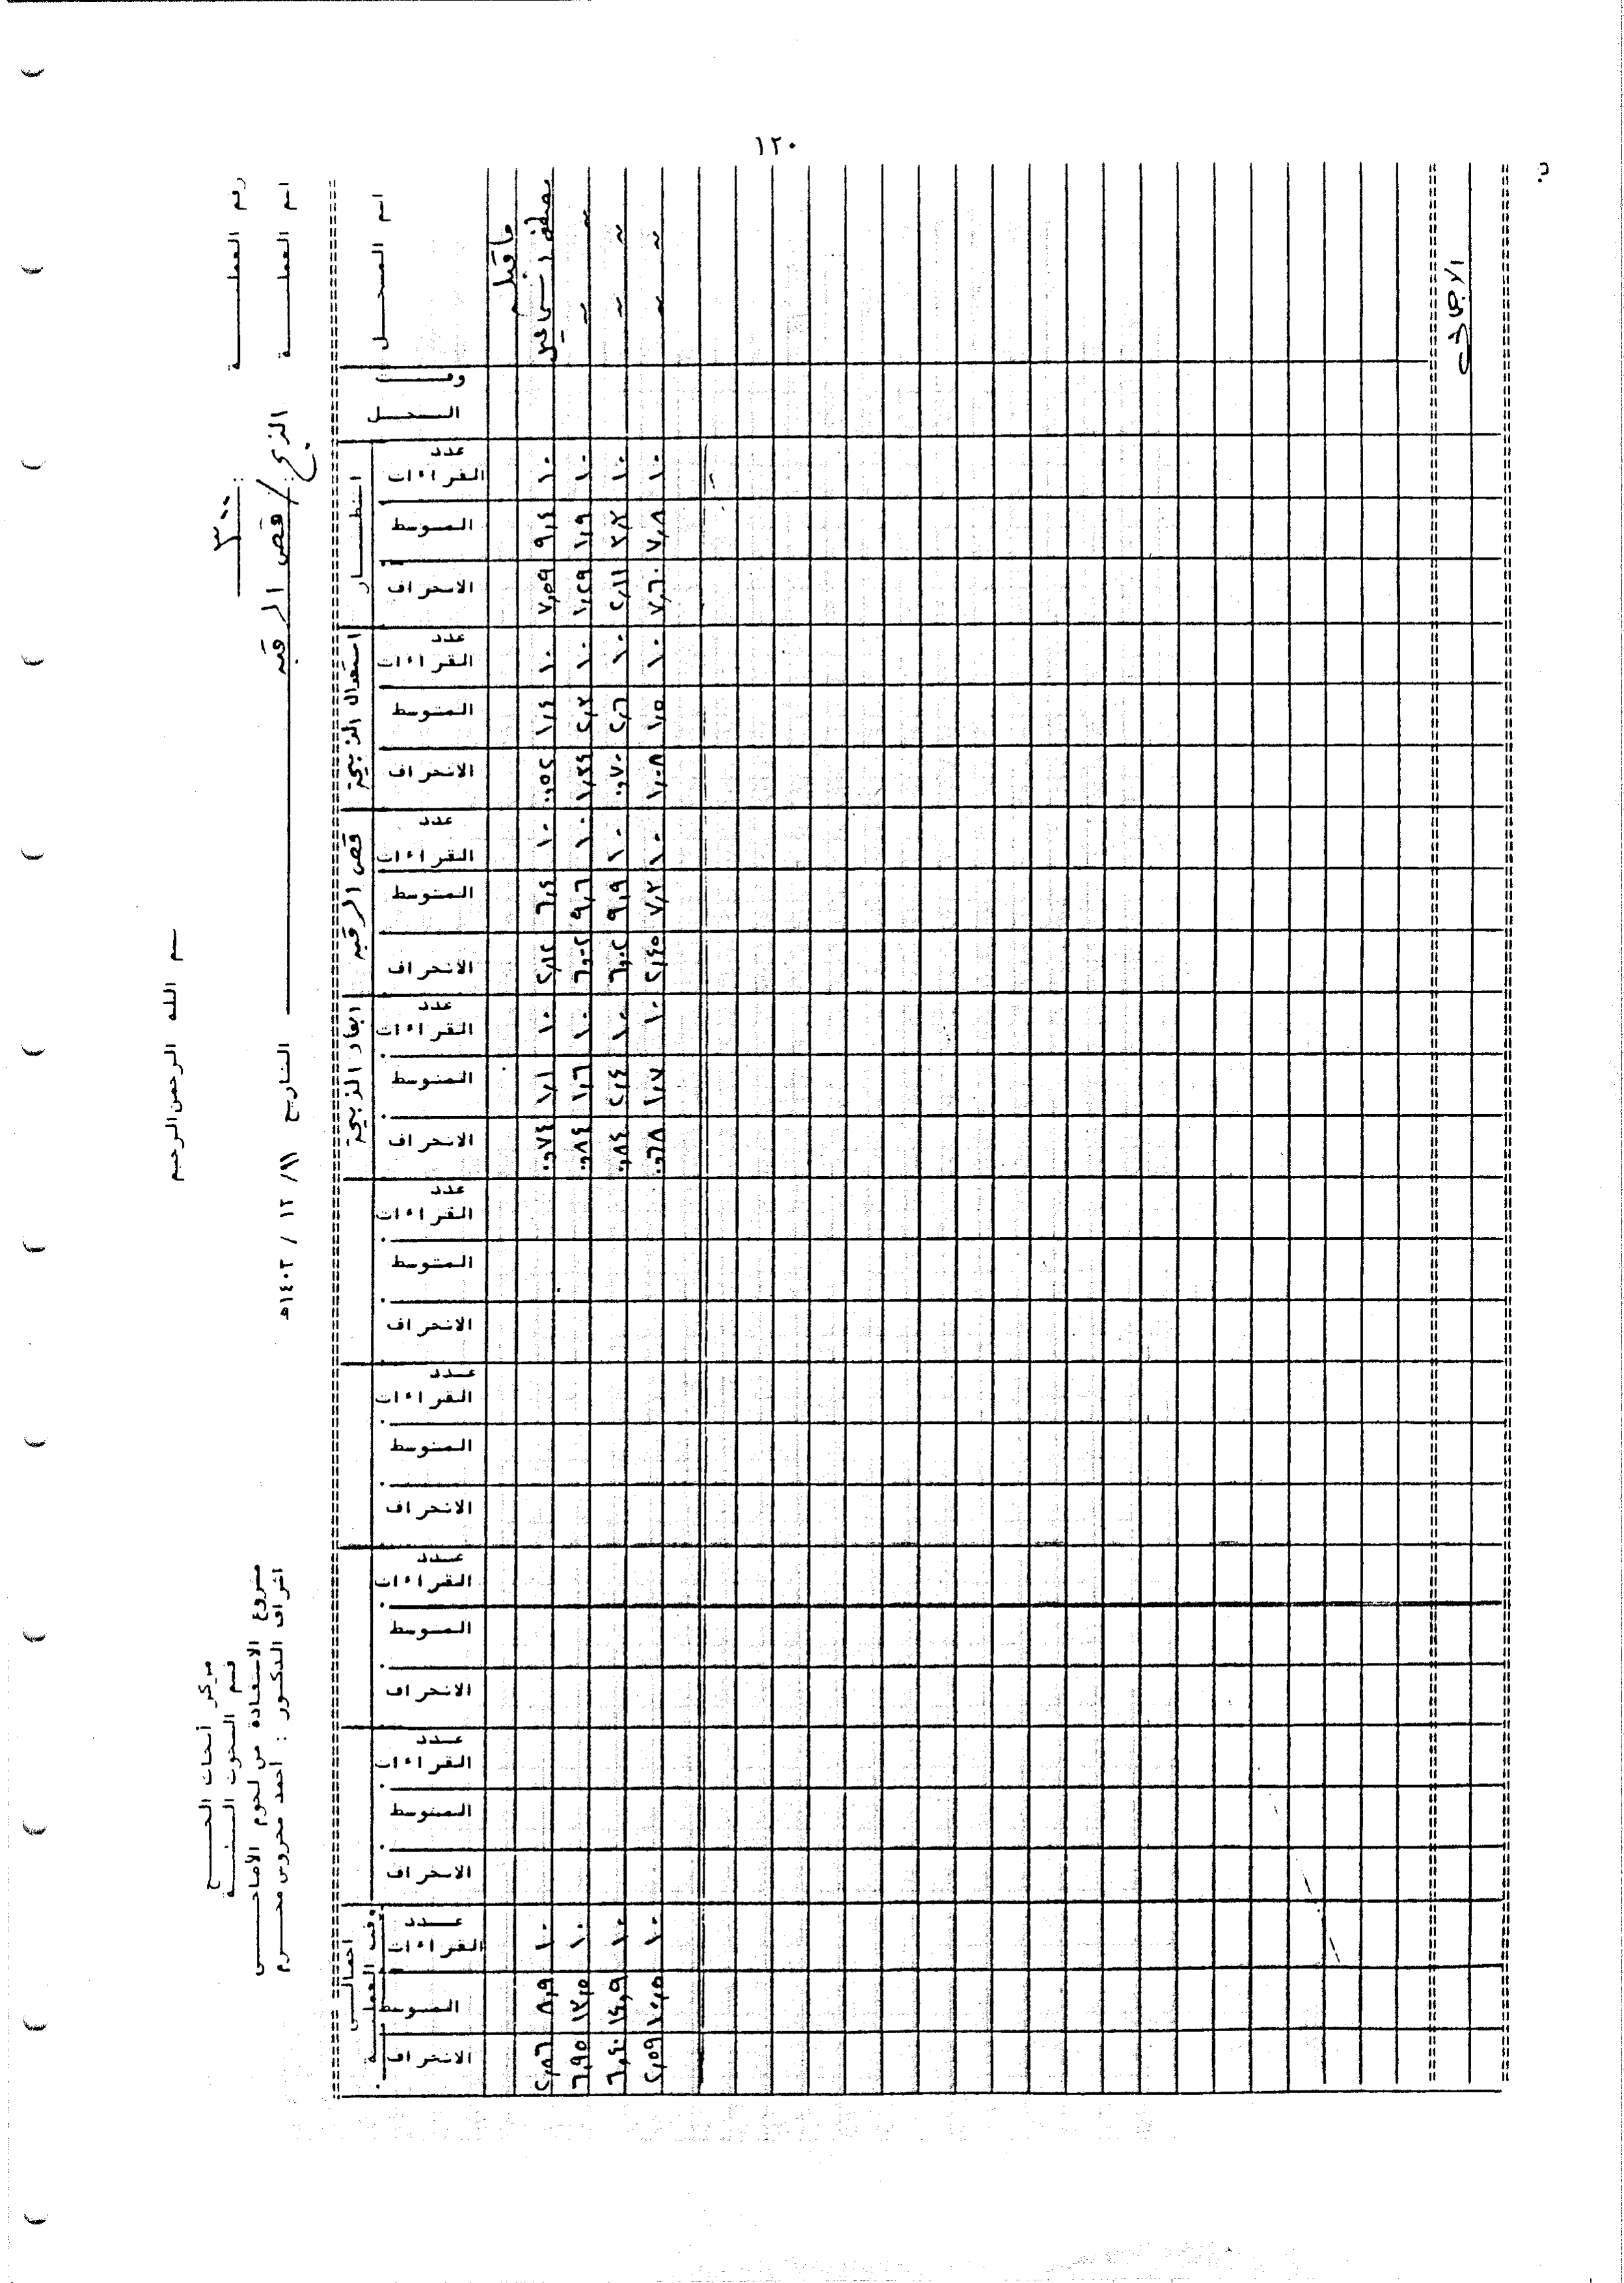 ١٢٠
بسم الله الرحمن الرحيم
مركز أبحاث الحج
قسم البحوث البيئية
مشروع الاستفادة من لحوم الأضاحي
اشراف الدكتور : أحمد محروس محرم
رقم العملية : ٣٠٠
اسم العملية : الذبح / قص الرقبه
التاريخ ١١/ ١٢ / ١٤٠٣هـ
اسم المسجل
وقت التسجيل
انتظار
استعدال الذبيحة
قص الرقبه
ابعاد الذبيحة
اجمالي وقت العملية
عدد القراءات المتوسط الانحراف عدد القراءات المتوسط الانحراف عدد القراءات المتوسط الانحراف عدد القراءات المتوسط الانحراف عدد القراءات المتوسط الانحراف عدد القراءات المتوسط الانحراف عدد القراءات المتوسط الانحراف عدد القراءات المتوسط الانحراف عدد القراءات المتوسط الانحراف
ما قبله
١٠ ٩,٤ ٧,٥٩ ١٠ ١,٤ ٠,٥٢ ١٠ ٦,٤ ٢,١٢ ١٠ ١,١ ٠,٧٤ ١٠ ٨,٩ ٢,٨٦
١٠ ١,٩ ١,٢٩ ١٠ ٢,٣ ١,٣٤ ١٠ ٩,٦ ٦,٠٢ ١٠ ١,٦ ٠,٨٤ ١٠ ١٣,٥ ٦,٩٥
١٠ ٣,٢ ٢,١١ ١٠ ٢,٦ ٠,٧٠ ١٠ ٩,٩ ٦,٠٢ ١٠ ٢,٤ ٠,٨٤ ١٠ ١٤,٩ ٦,٤٠
١٠ ٧,٨ ٧,٦٠ ١٠ ١,٥ ١,٠٨ ١٠ ٧,٢ ٢,٤٥ ١٠ ١,٧ ٠,٦٨ ١٠ ١٠,٥ ٢,٥٩
الاجمالى